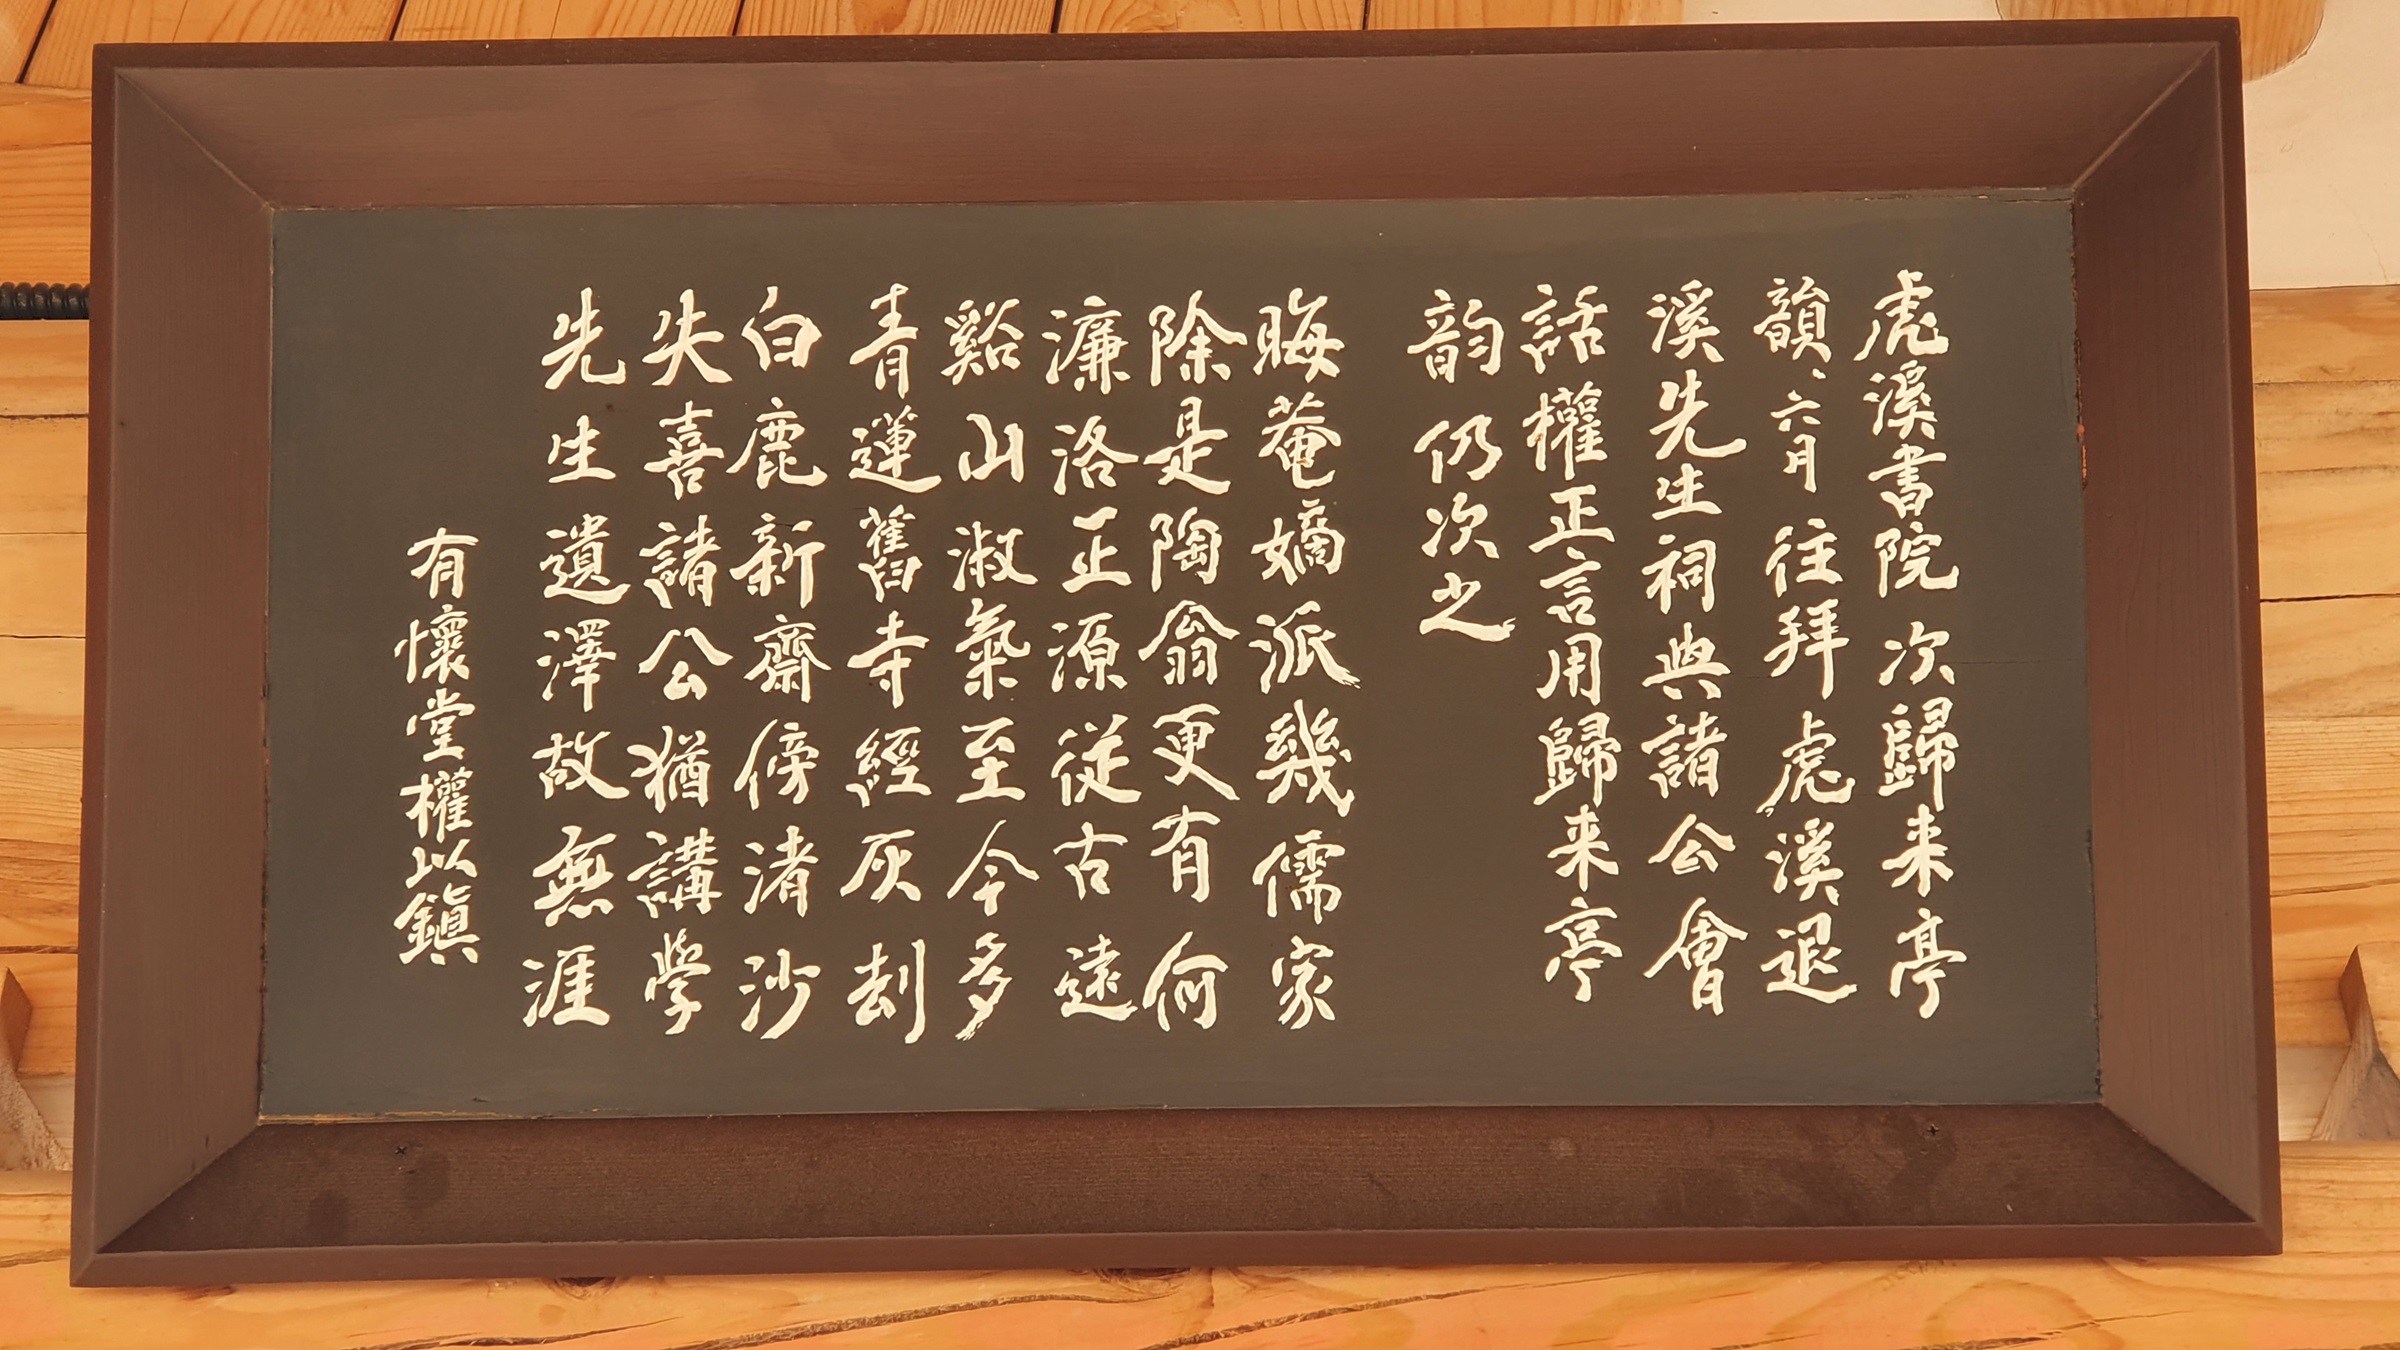 虎溪書院 次歸来亭
韻、六月 往拜 虎溪退
溪先生祠與諸公會
話權正言用歸来亭
韵仍次之
晦菴嫡派幾儒家
除是陶翁更有何
濂洛正源從古遠
谿山淑氣至今多
青蓮舊寺經灰刦
白鹿新齋傍渚沙
失喜諸公猶講學
先生遺澤故無涯
有懷堂權以鎭